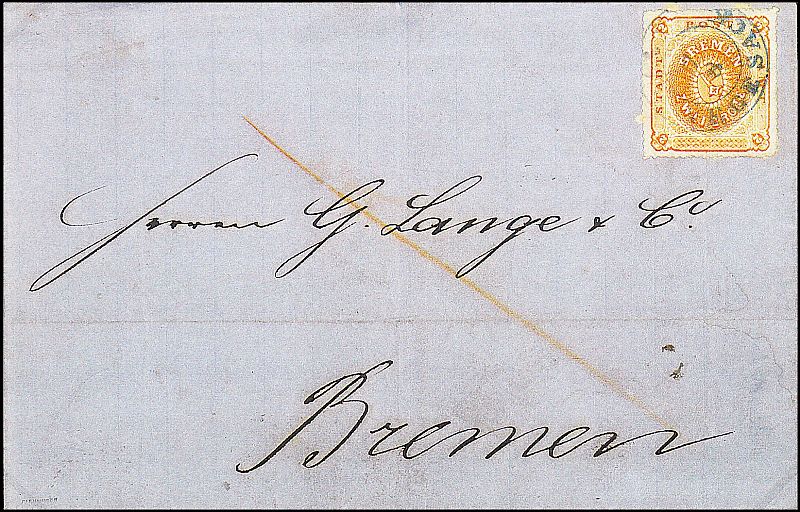 STADT POST
BREMEN
ZWEI GROTE
Herren G. Lange & Co.
Bremen